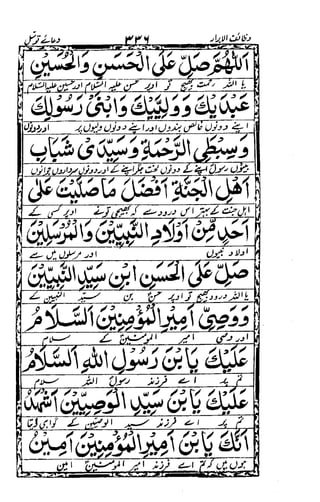 وظائف الابرار ۳۳۶ دعائے توسل
اَللّٰهُمَّ صَلِّ عَلَى الْحَسَنِ وَالْحُسَيْنِ
یا اللہ رحمت بھیج تو اوپر حسن علیہ السلام اور حسین علیہ السلام
عَبْدَيْكَ وَوَلِيَّيْكَ وَابْنَىْ رَسُوْلِكَ
اپنے دونوں خالص بندوں اور اپنے دونوں ولیوں پر اور دونوں
وَسِبْطَيِ الرَّحْمَةِ وَسَيِّدَىْ شَبَابِ
بیٹوں رسول اپنے کے دونوں
اَهْلِ الْجَنَّةِ اَفْضَلَ مَا صَلَّيْتَ عَلٰى
اہل جنت کے بہتر اس درود سے کہ بھیجی تونے اوپر کسی کے
اَحَدٍ مِّنْ اَوْلَادِ النَّبِيِّيْنَ وَالْمُرْسَلِيْنَ
اولاد نبیوں اور مرسلوں میں سے
صَلِّ عَلَى الْحَسَنِ ابْنِ سَيِّدِ النَّبِيِّيْنَ
یا اللہ درود بھیج تو اوپر حسن بن سید النبیین کے
وَوَصِىِّ اَمِيْرِ الْمُؤْمِنِيْنَ اَلسَّلَامُ
اور وصی امیر المومنین کے سلام
عَلَيْكَ يَا بْنَ رَسُوْلِ اللهِ اَلسَّلَامُ
تم پر اے فرزند رسول اللہ سلام
عَلَيْكَ يَا بْنَ سَيِّدِ الْوَصِيِّيْنَ اَشْهَدُ
تم پر اے فرزند سید الوصیین کے گواہی دیتا
اَنَّكَ يَا بْنَ اَمِيْرِ الْمُؤْمِنِيْنَ اَمِيْنُ
ہوں میں کہ تم اے فرزند امیر المومنین امین